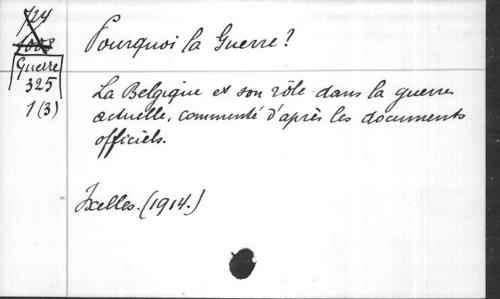 724
1008
Guerre
325
1(3)
Pourquoi la Guerre?
La Belgique et son rôle dans la guerre
actuelle, commenté d'après les documents
officiels.
Ixelles. (1914.)